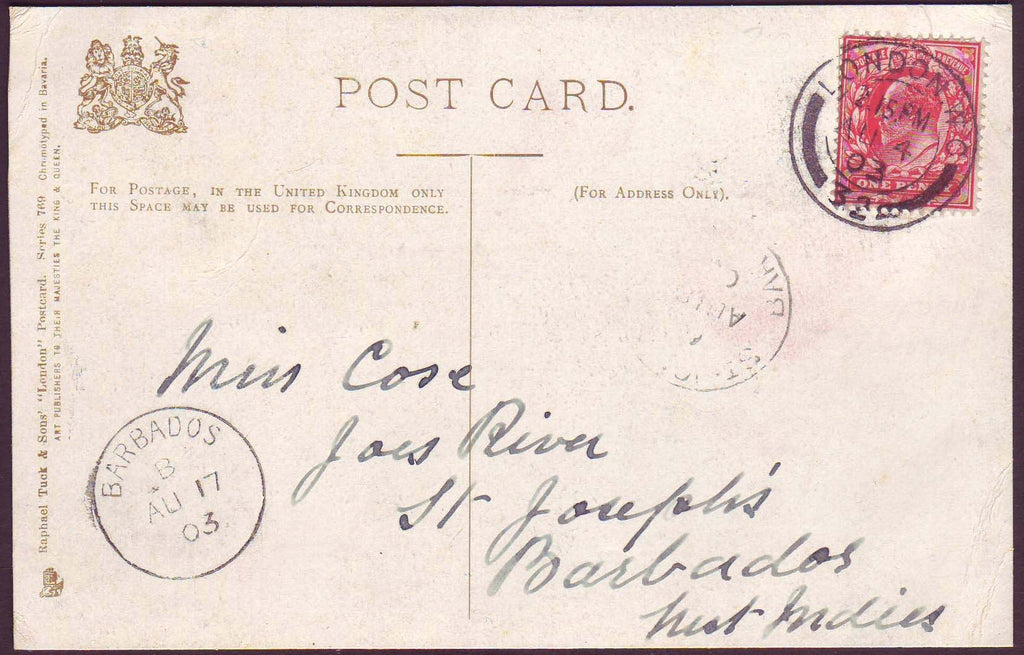 POST CARD.
FOR POSTAGE, IN THE UNITED KINGDOM ONLY
THIS SPACE MAY BE USED FOR CORRESPONDENCE.
(FOR ADDRESS ONLY).
Raphael Tuck & Sons' "London" Postcard. Series 769 Chromotyped in Bavaria.
ART PUBLISHERS TO THEIR MAJESTIES THE KING & QUEEN.
LONDON. W.C
2.15 PM
AU 4
03
ONE PENNY
Miss Cose
Joes River
St Joseph's
Barbados
West Indies
BARBADOS
B
AU 17
03